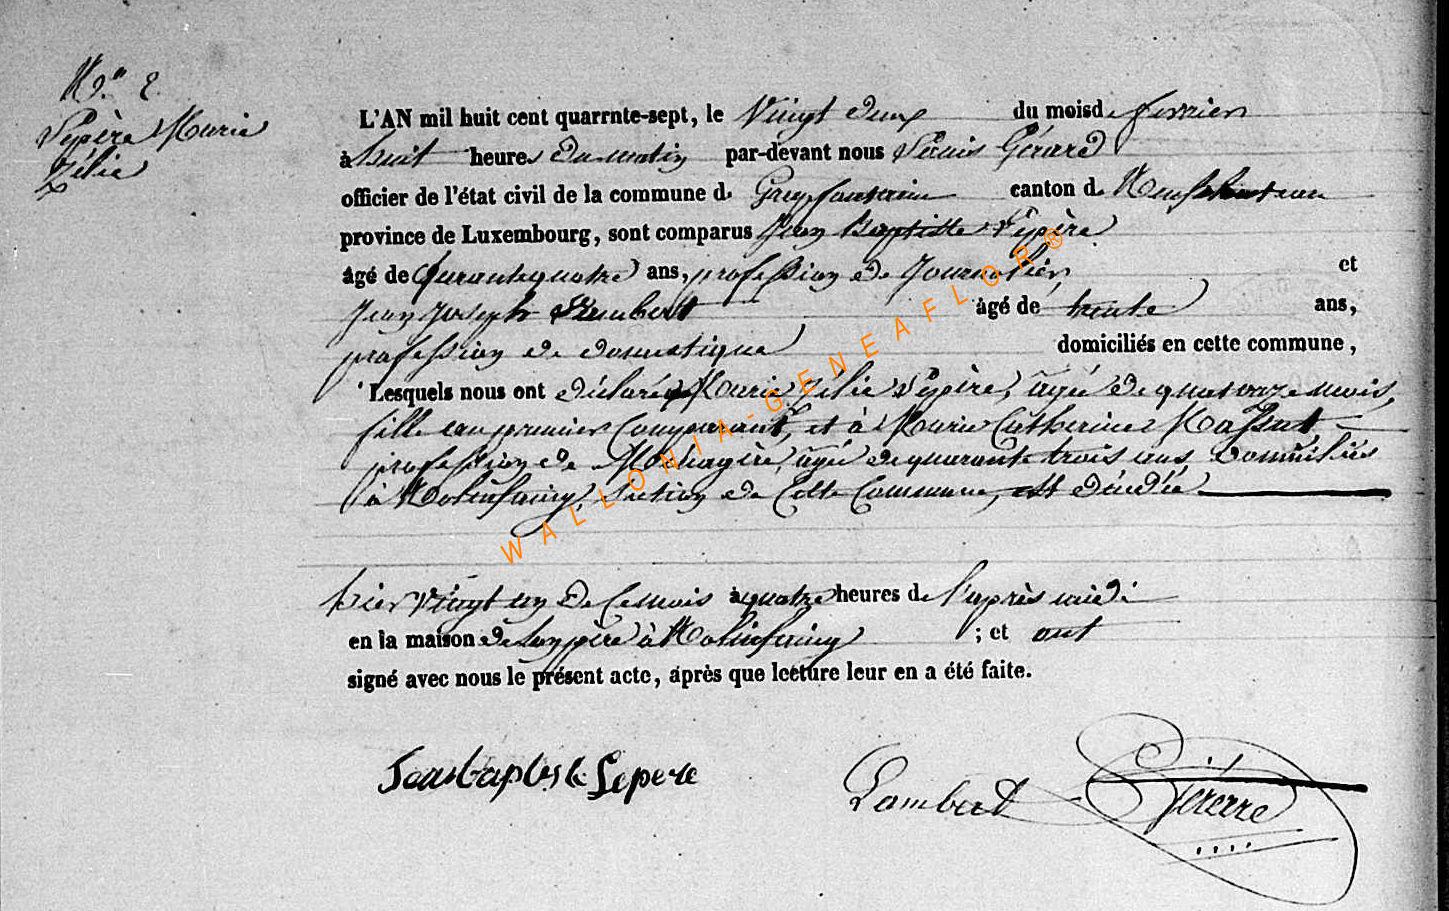 N.° 2.
Lepère Marie
Zélie
L'AN mil huit cent quarrnte-sept, le Vingt deux du moisde fevrier
à huit heures du matin par-devant nous Louis Gérard
officier de l'état civil de la commune de Grapfontaine canton de Neufchateau
province de Luxembourg, sont comparus Jean Baptiste Lepère
âgé de Quarantequatre ans, profession de Journalier et
Jean Joseph Lambert âgé de trente ans,
profession de domestique domiciliés en cette commune,
Lesquels nous ont déclaré q Marie Zélie Lepère, agée de quatorze mois,
fille au premier Comparant, et à Marie Catherine
profession de Ménagère, agée de quarante trois ans Domiciliés
à Molinfaing, Section de Cette Commune, est décédée
hier Vingt un de Ce mois à quatre heures de l'après midi
en la maison de Lepère à Molinfaing ; et ont
signé avec nous le présent acte, après que lecture leur en a été faite.
Jeanbaptiste Lepere
Lambert
Gérard
WALLONIA-GENEAFLOR®